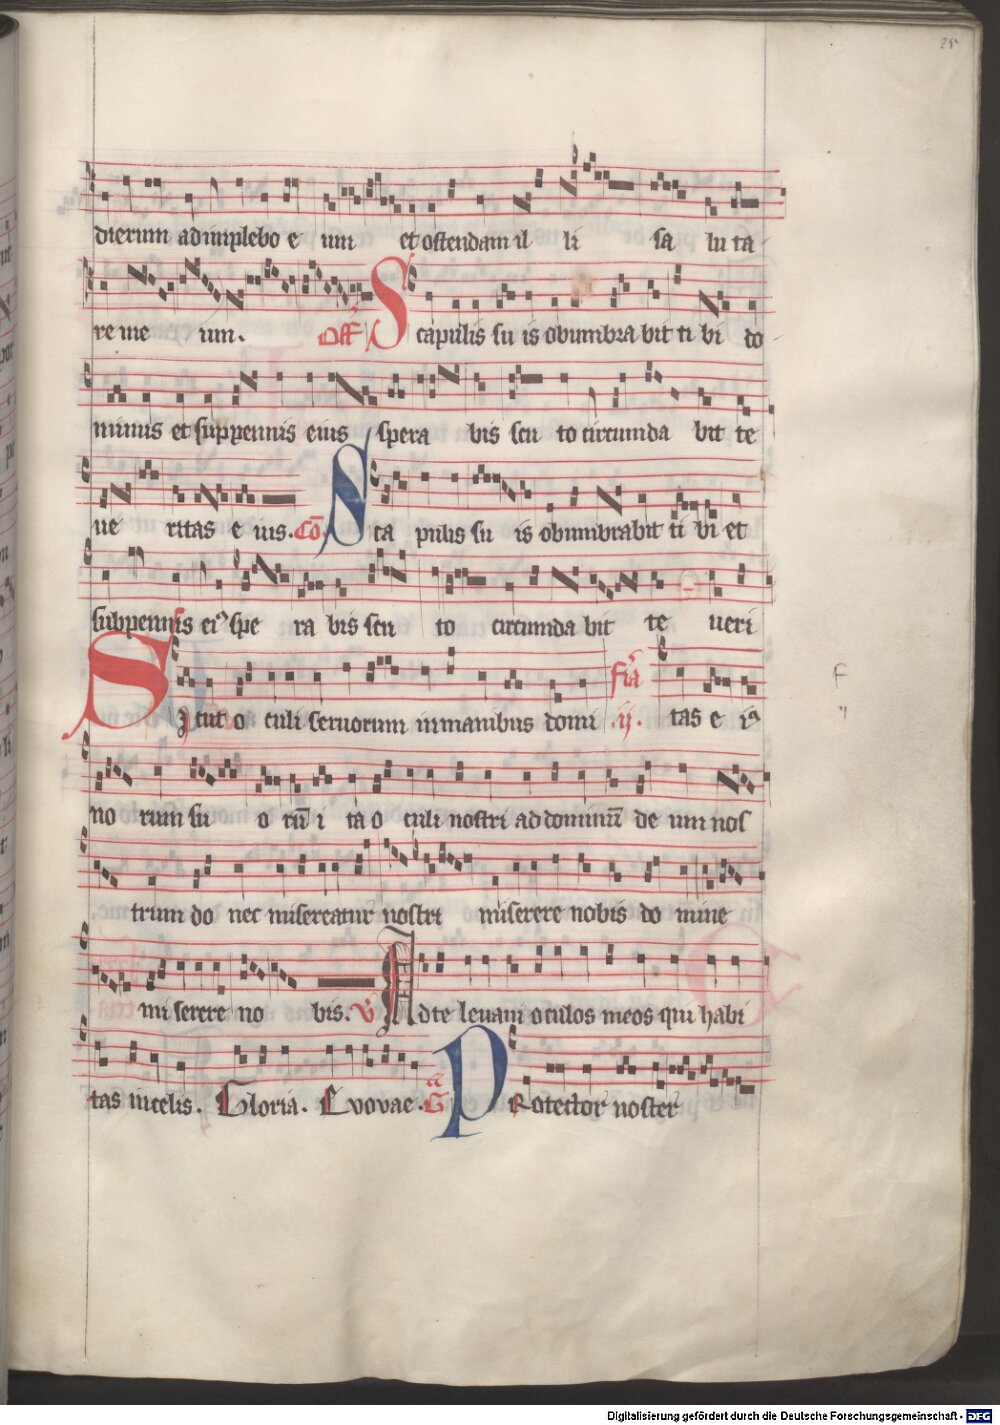 25
dierum adimplebo e um et ostendam il li sa lu ta
re me um. Off Scapulis su is obumbra bit ti bi do
minus et sub pennis eius spera bis scu to circumda bit te
ue ritas e ius. Cō. Sca pulis su is obumbrabit ti bi et
sub pennis eiꝰ spe ra bis scu to circumda bit te ueri
Sicut o culi seruorum in manibus domi fia ij. tas e iꝰ
no rum su o rū i ta o culi nostri ad dominū de um nos
trum do nec misereatur nostri miserere nobis do mine
mi serere no bis. V Ad te leuaui oculos meos qui habi
tas in celis. Gloria. Evovae. G Protector noster
Digitalisierung gefördert durch die Deutsche Forschungsgemeinschaft - DFG